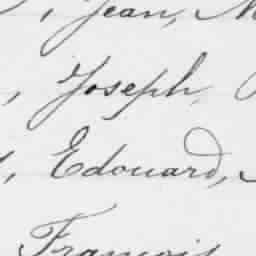 , Jean,
, Joseph,
, Edouard,
François